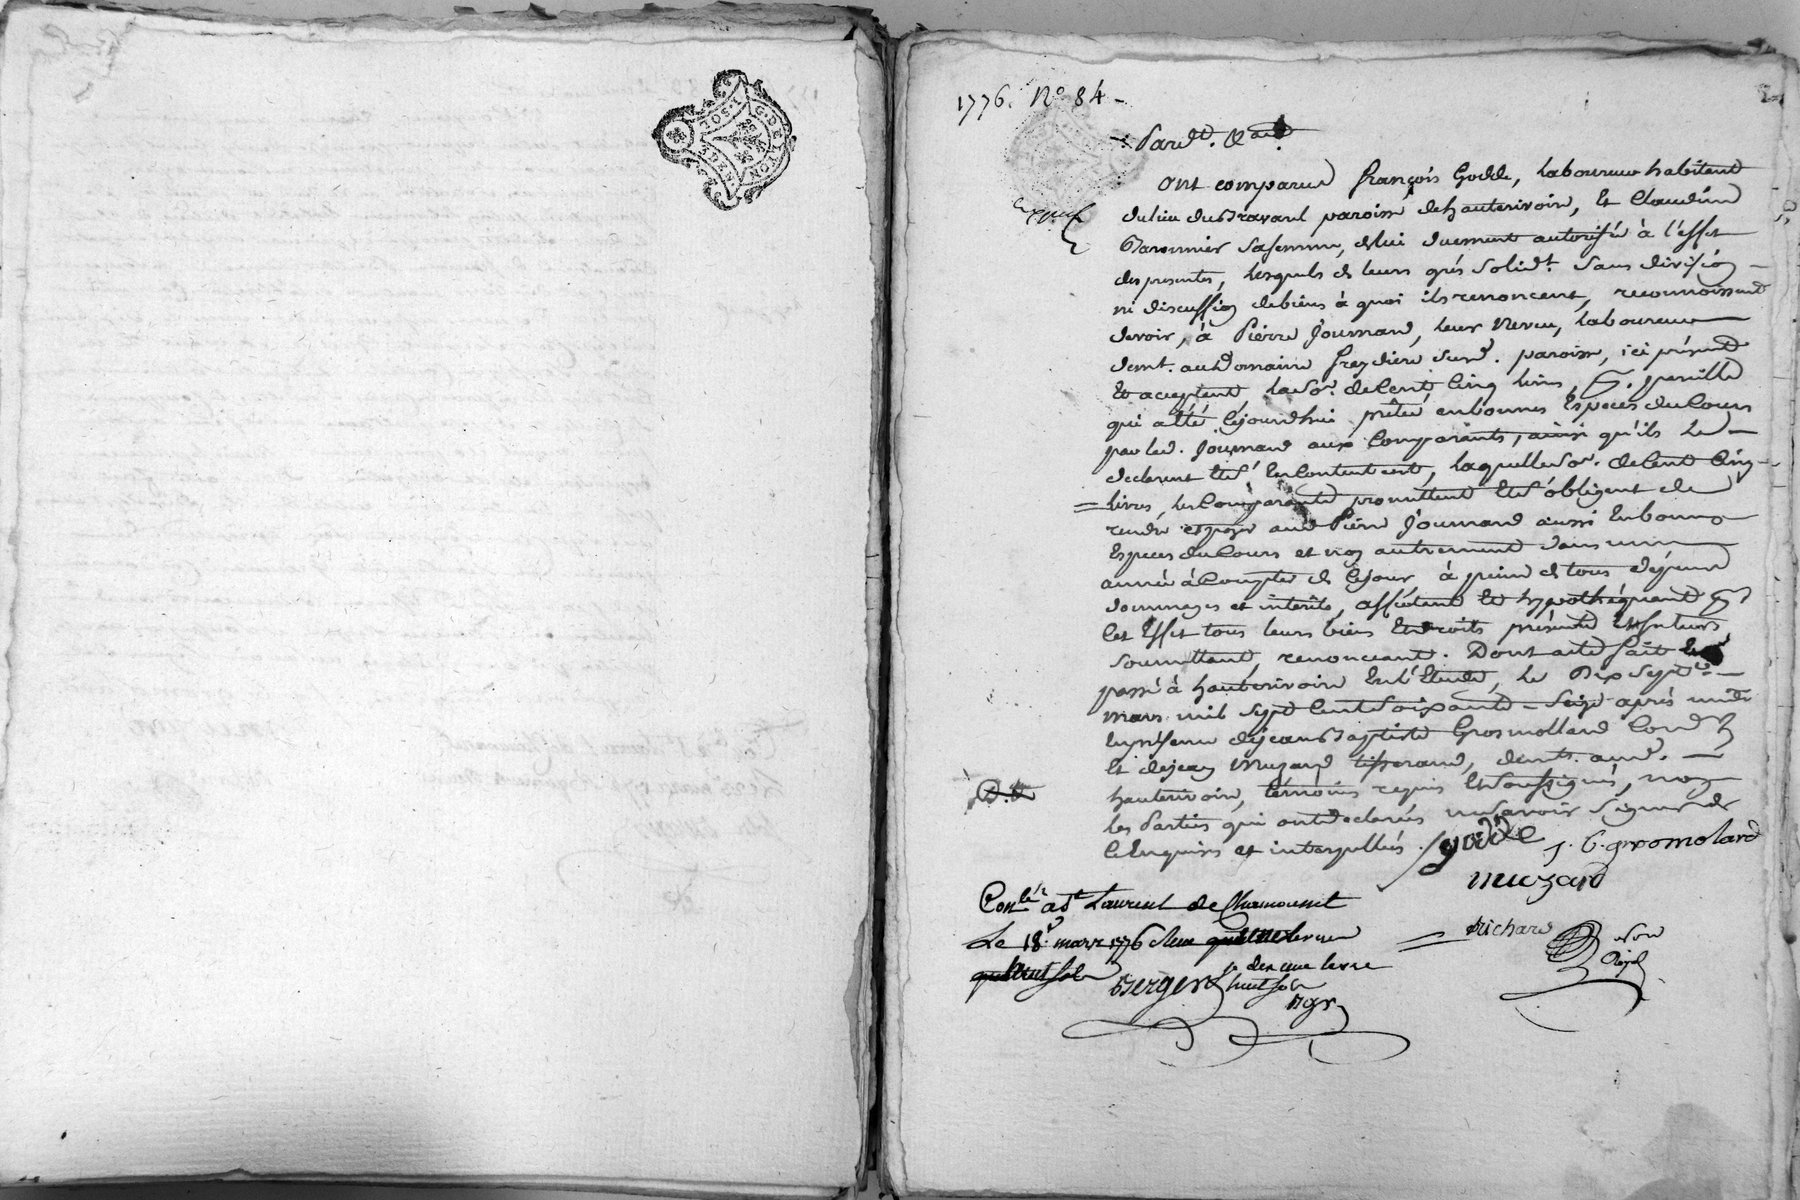 G. DE LYON
1776. N° 84 -
Pardt. &a.
Ont comparu françois Godde, laboureur habitant
du lieu du Bravard paroisse de hauterivoire, Et Claudine
sa femme, de lui duement autorisée à l'effet
des presentes, lesquels de leurs grés solidt. sans division
ni discussion de biens à quoi ils renoncent, reconnoissent
devoir, à Pierre Journard, leur Neveu, laboureur
demt. au Domaine sud. paroisse, ici présent
Et acceptant, la so. de Cent Cinq livres, pareille
qui a été Cejourdhui prêtée en bonnes Especes du Cours
par led. Journard aux Comparants, ainsi qu'ils le
declarent Et s'en Contentent, laquelle so. de Cent Cinq
livres, les Comparants promettent Et s'obligent de
rendre et payer aud. Pierre Journard aussi En bonnes
Especes du Cours et non autrement dans une
année à Compter de Cejour, à peine de tous dépens
dommages et interêts, affectant Et hypothéquant pr.
Cet Effet tous leurs biens Et droits présents Et futurs
soumettant, renonceant. Dont acte fait Et
passé à hauterivoire En l'Etude, le Dix Sept
mars mil sept Cent soixante-seize après midi
En présence de jean Baptiste Gromollard
Et de jean Muzard tisserand, demts. aud.
hauterivoire, témoins requis Et soussignés, non
les Parties qui ont declarés ne savoir signer de
Ce Enquises et interpellées.
godde J. B. gromolard
muzard
Conlé. a St Laurent de Chamousset
Le 18e. mars 1776
je dis une livre
huit sols
Berger
Bgr
Richard
Nore
Royal